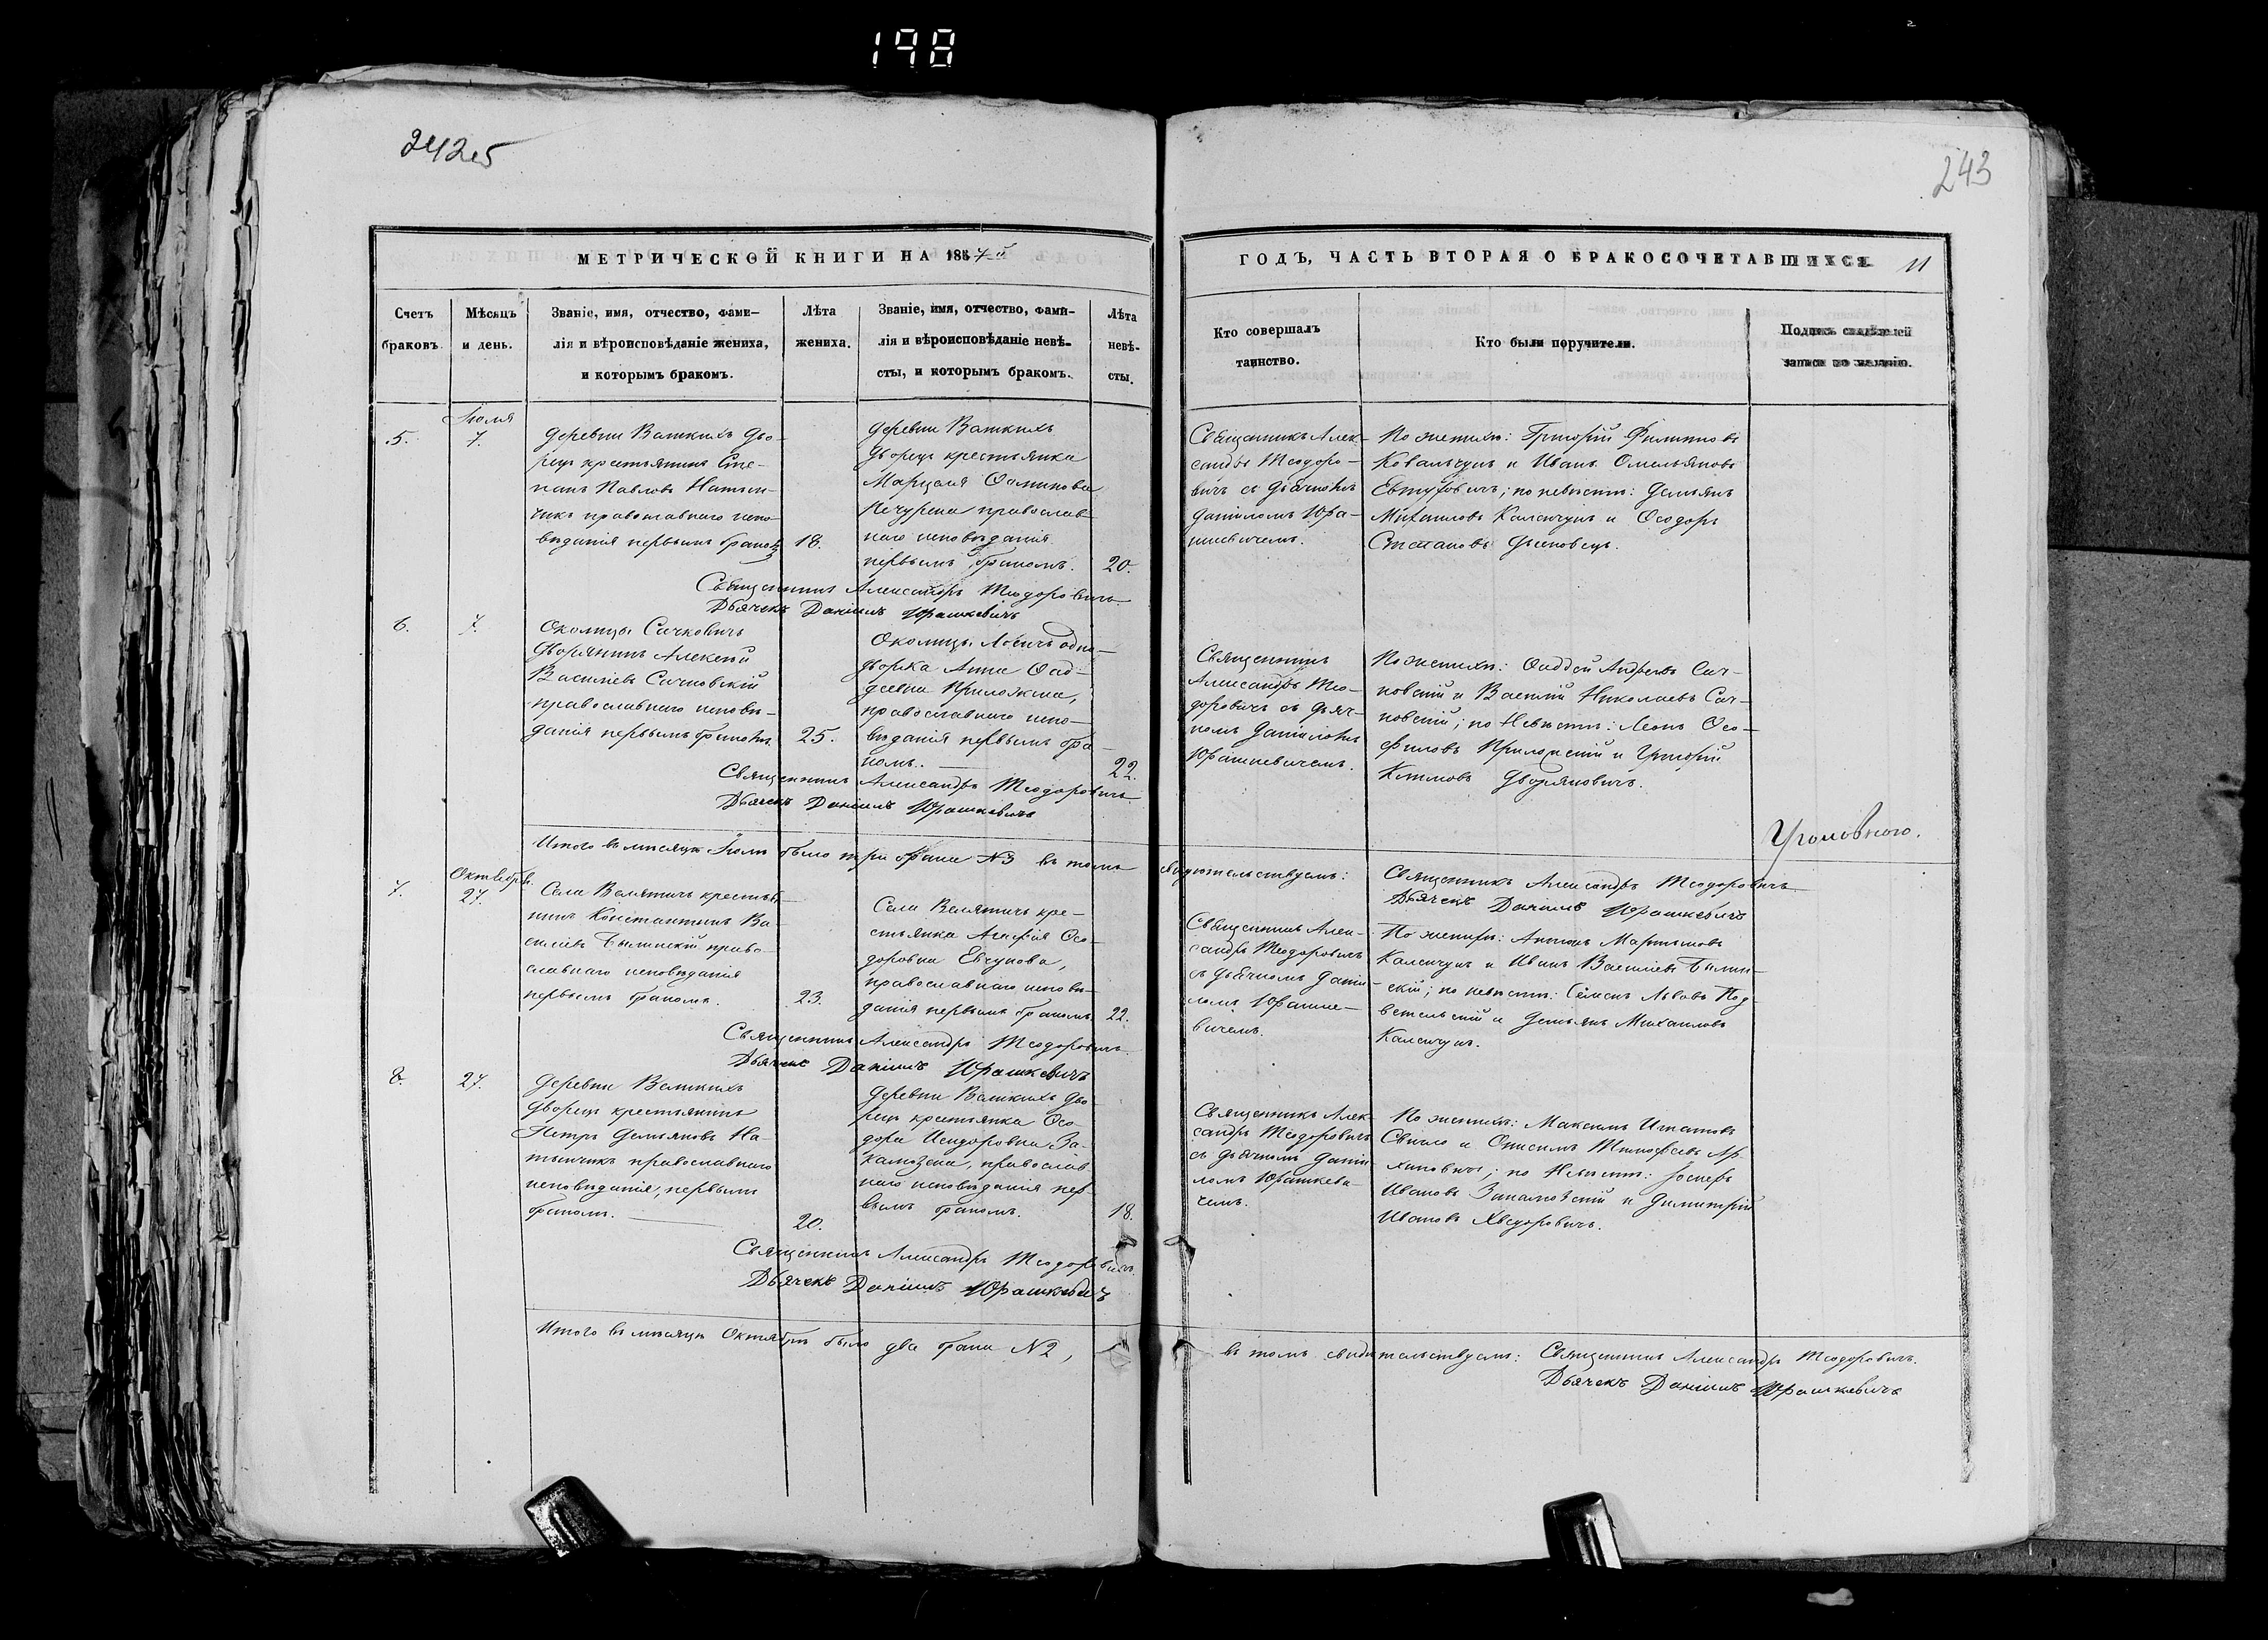 198
242об
243
МЕТРИЧЕСКОЙ КНИГИ НА 1857й
ГОДЪ, ЧАСТЬ ВТОРАЯ О БРАКОСОЧЕТАВШИХСЯ
11
Счетъ
браковъ.
Мѣсяцъ
и день.
Званіе, имя, отчество, фами-
лія и вѣроисповѣданіе жениха,
и которымъ бракомъ.
Лѣта
жениха.
Званіе, имя, отчество, фами-
лія и вѣроисповѣданіе невѣ-
сты, и которымъ бракомъ.
Лѣта
невѣ-
сты.
Кто совершалъ
таинство.
Кто были поручители.
Подпись свидѣтелей
записи по желанію.
5.
Іюля
7.
Деревни Великихъ Дво-
рецъ крестьянинъ Сте-
панъ Павловъ
православнаго испо-
вѣданія первымъ бракомъ
18.
Деревни Великихъ
Дворецъ крестьянка
Марцеля
православ-
наго исповѣданія
первымъ бракомъ.
20.
Священникъ Алек-
сандръ Теодоро-
вичъ съ дьячкомъ
Даніиломъ Юра-
шкевичемъ.
По женихѣ: Григорій Филиповъ
Ковальчукъ и Иванъ Омельяновъ
Евтуховичъ; по невѣстѣ: Демьянъ
Михаиловъ Каленчукъ и Ѳеодоръ
Степановъ
Священникъ Александръ Теодоровичъ
Дьячекъ Даніилъ Юрашкевичъ
6.
7.
Околицы Сачковичъ
Дворянинъ Алексѣй
Василіевъ Сачковскій
православнаго исповѣ-
данія первымъ бракомъ
25.
Околицы Лосичъ одно-
дворка Анна Ѳад-
деевна
православнаго испо-
вѣданія первымъ бра-
комъ.
22.
Священникъ
Александръ Тео-
доровичъ съ дьяч-
комъ Даніиломъ
Юрашкевичемъ.
По женихѣ: Ѳаддей Андреевъ Сач-
ковскій и Василій Николаевъ Сач-
ковскій; по Невѣстѣ: Леонъ Ѳео-
филовъ и Григорій
Климовъ Дворяновичъ.
Священникъ Александръ Теодоровичъ
Дьячекъ Даніилъ Юрашкевичъ
Уголовного.
Итого въ мѣсяцѣ Іюлѣ было три брака №3 въ томъ свидѣтельствуемъ:
Священникъ Александръ Теодоровичъ
Дьячекъ Даніилъ Юрашкевичъ
7.
Октября.
27.
Села Велятичъ крестья-
нинъ Константинъ Ва-
силіевъ Былинскій право-
славнаго исповѣданія
первымъ бракомъ.
23.
Села Велятичъ кре-
стьянка Агафія Ѳео-
доровна
православнаго исповѣ-
данія первымъ бракомъ
22.
Священникъ Алек-
сандръ Теодоровичъ
съ дьячкомъ Даніи-
ломъ Юрашке-
вичемъ.
По женихѣ: Антонъ Мартыновъ
Каленчукъ и Иванъ Василіевъ Былин-
скій; по невѣстѣ: Семенъ Львовъ Под-
и Демьянъ Михаиловъ
Каленчукъ.
Священникъ Александръ Теодоровичъ
Дьячекъ Даніилъ Юрашкевичъ
8.
27.
Деревни Великихъ
Дворецъ крестьянинъ
Петръ Демьяновъ На-
православнаго
исповѣданія, первымъ
бракомъ.
20.
Деревни Великихъ Дво-
рецъ крестьянка Ѳео-
дора Исидоровна
православ-
наго исповѣданія пер-
вымъ бракомъ.
18.
Священникъ Алек-
сандръ Теодоровичъ
съ дьячкомъ Даніи-
ломъ Юрашкеви-
чемъ.
По женихѣ: Максимъ Игнатовъ
и Онисимъ Тимофеевъ Ар-
хиповичъ; по Невѣстѣ: Іосифъ
Ивановъ и Димитрій
Ивановъ Хведоровичъ.
Священникъ Александръ Теодоровичъ.
Дьячекъ Даніилъ Юрашкевичъ
Итого въ мѣсяцѣ Октябрѣ было два брака №2, въ томъ свидѣтельствуемъ: Священникъ Александръ Теодоровичъ.
Дьячекъ Даніилъ Юрашкевичъ